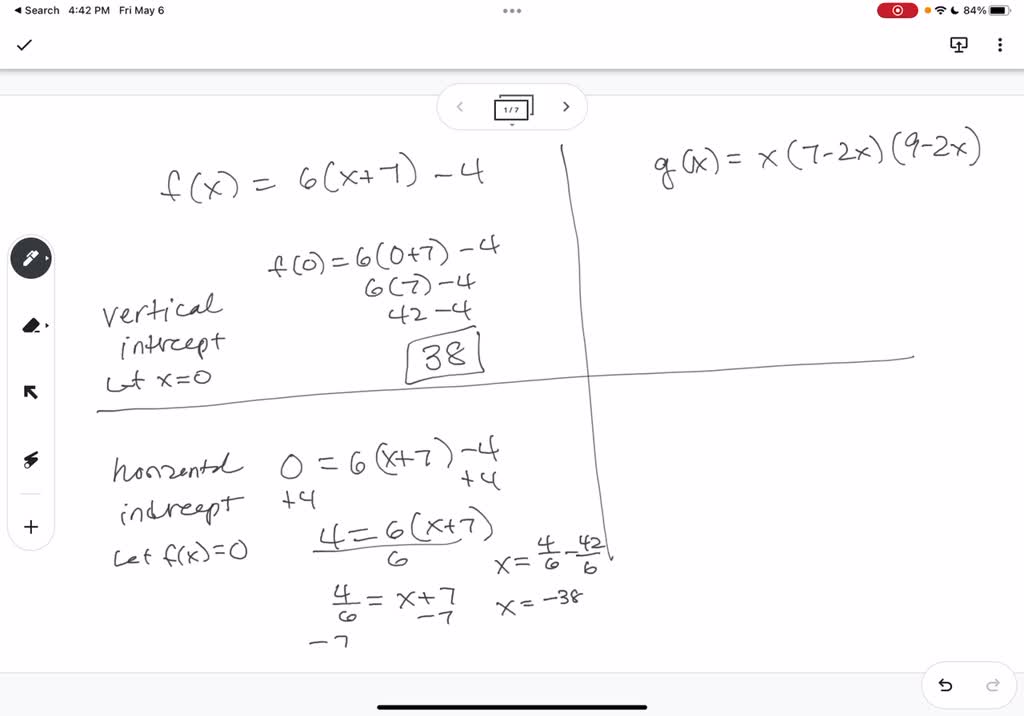 Search 4:42 PM Fri May 6
84%
1/7
f(x) = 6(x+7) -4
f(0) = 6(0+7) -4
6(7) -4
42 -4
38
vertical
intrcept
Let x=0
horizontal
intrcept
Let f(x)=0
0 = 6(x+7) -4
+4 +4
4 = 6(x+7)
6
4/6 = x+7
-7 -7
x = 4/6 - 42/6
x = -38
g(x) = x(7-2x)(9-2x)